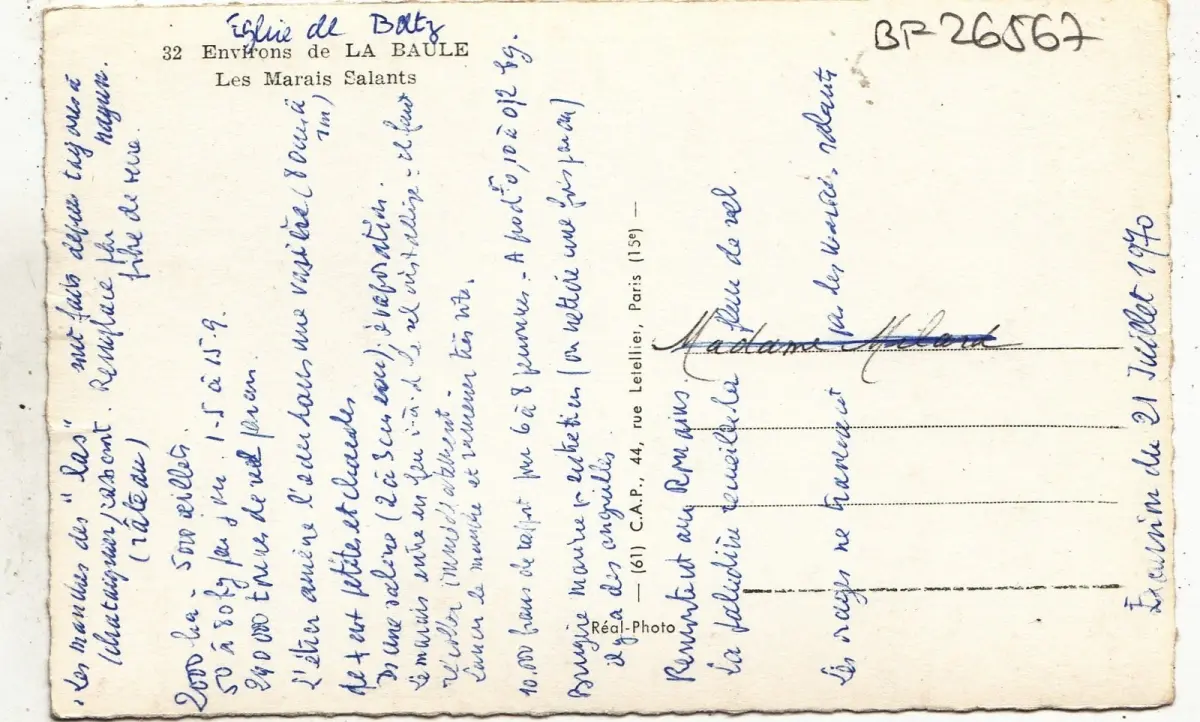 Eglise de Batz
32 Environs de LA BAULE
Les Marais Salants
BP 26567
Les manches des "las" sont faits depuis
(chataignier) cassent. Remplacé par
fibre de verre
(râteau)
2000 ha - 5000 œillets
50 à 80 kg par jour 1-5 à 15-9.
240 000 tonnes de sel par an
L'étier amène l'eau dans une vasière (80 cm à
1m)
de + en + petites et chaudes
Dans une saline (2 à 3 cm eau); évaporation.
Le marais entre en feu c-à-d le sel cristallise - il faut
récolter immédiatement -
Lancer le manche et ramener très vite.
10.000 francs de rapport pour 6 à 8 personnes - A prod 0,10 à 0,12 kg.
entretien (on nettoie une fois par an)
il y a des anguilles
Réal-Photo — (61) C.A.P., 44, rue Letellier, Paris (15e) —
Remontent aux Romains.
La paludière recueille la fleur de sel
Madame Milard
Les orages ne traversent pas les marais salants
Excursion du 21 Juillet 1970